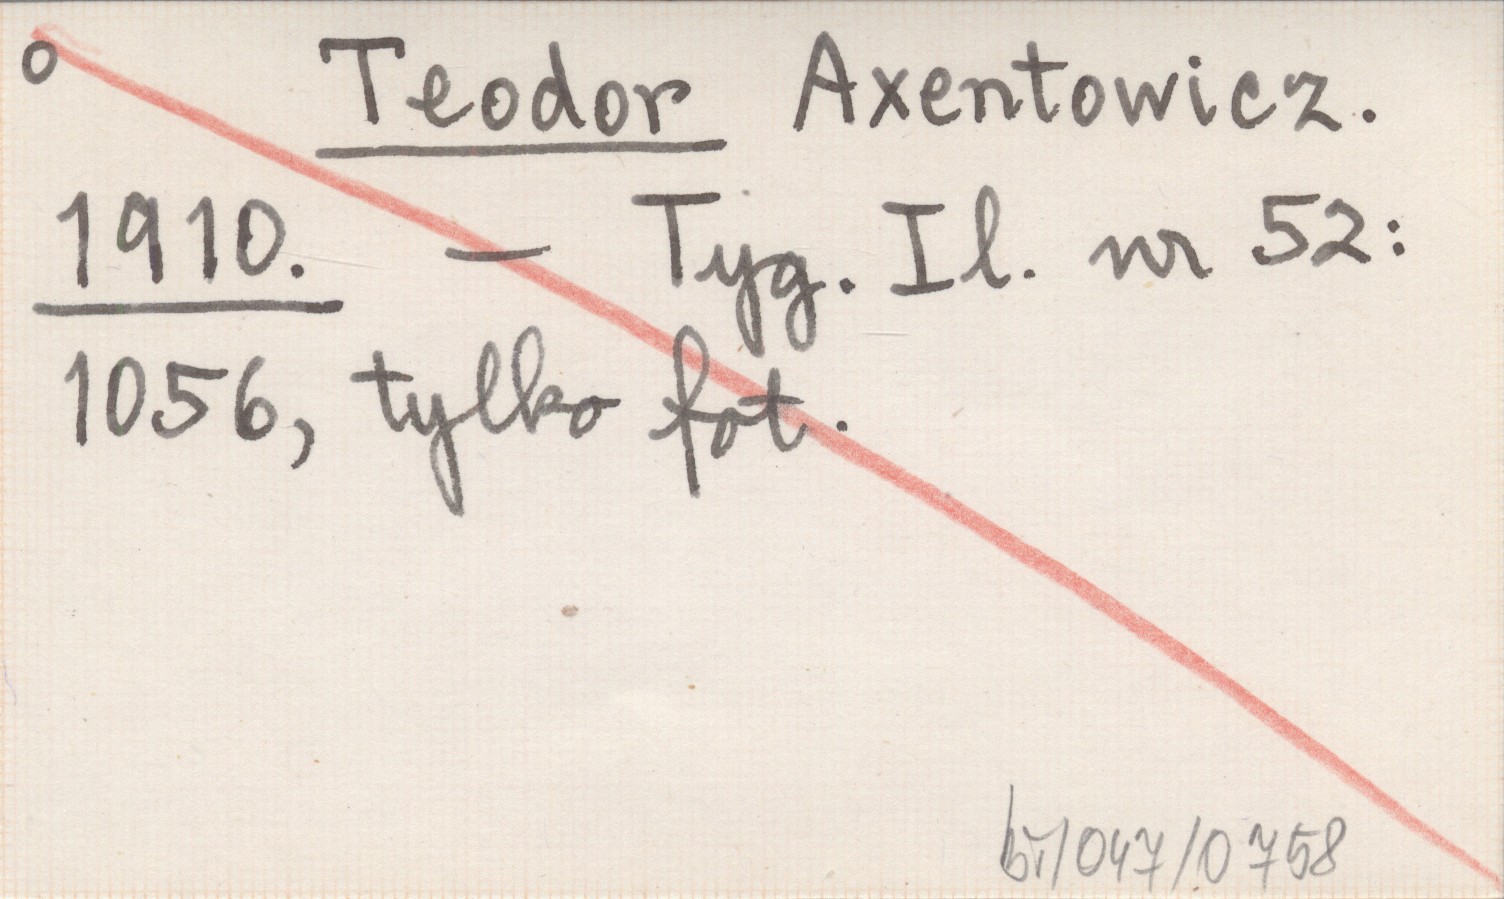 o Teodor Axentowicz.
1910. — Tyg. Il. nr 52:
1056, tylko fot.
br/047/0758